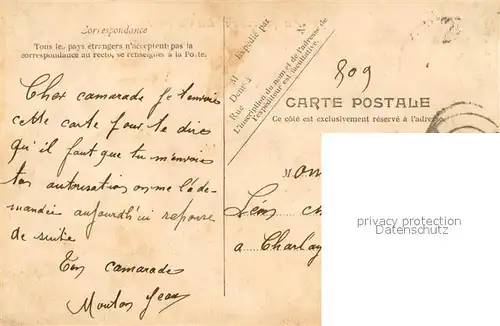 Correspondance
Tous les pays étrangers n'acceptent pas la
correspondance au recto, se renseigner à la Poste.
Cher camarade je t'envoie
cette carte pour te dire
qu'il faut que tu m'envoie
ton autorisation on me l'a de-
mandée aujourd'hui reponse
de suite
Ton camarade
Moulos Jean
Expédié par
M
Demt à
Rue
No
L'inscription du nom et de l'adresse de
l'expéditeur est facultative.
809
CARTE POSTALE
Ce côté est exclusivement réservé à l'adre
M on
Léon
a Charlay
philatelistischer
Datenschutz
privacy protection